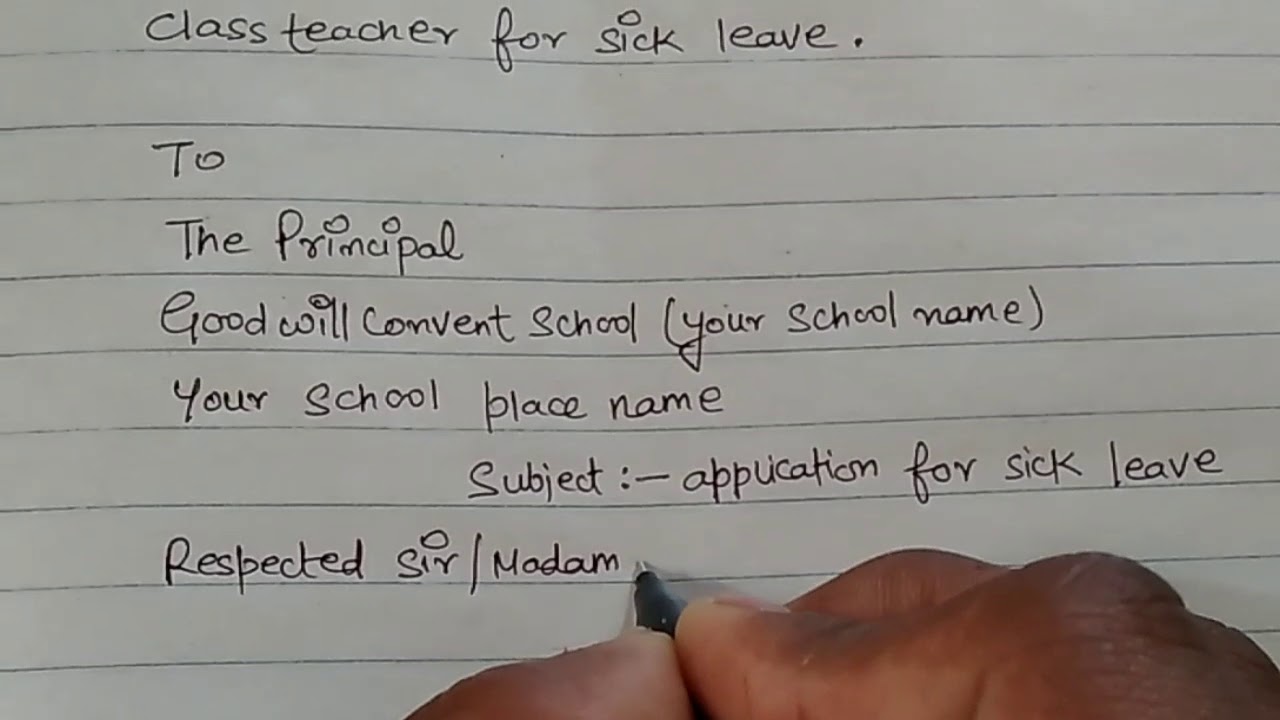 Class teacher for sick leave.
To
The Principal
Goodwill Convent School (your school name)
Your school place name
Subject :- application for sick leave
Respected sir/Madam